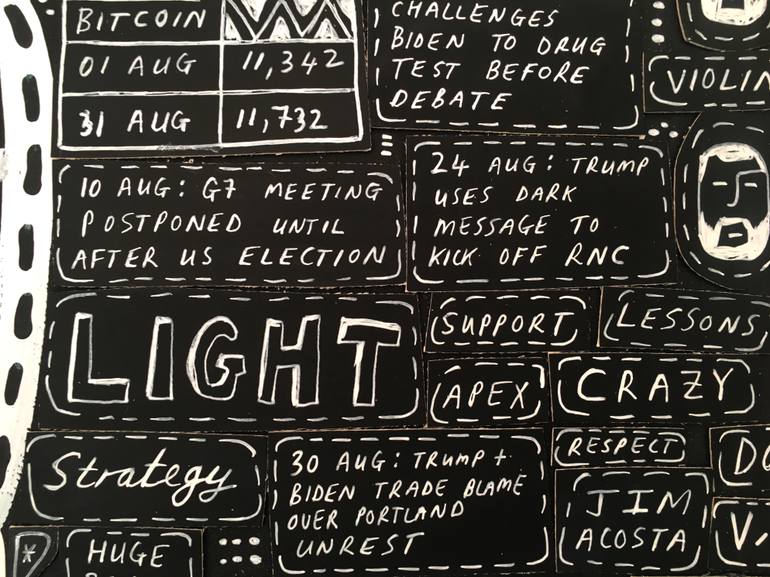 BITCOIN
01 AUG 11,342
31 AUG 11,732
CHALLENGES
BIDEN TO DRUG
TEST BEFORE
DEBATE
VIOLIN
10 AUG: G7 MEETING
POSTPONED UNTIL
AFTER US ELECTION
24 AUG: TRUMP
USES DARK
MESSAGE TO
KICK OFF RNC
LIGHT
SUPPORT
LESSONS
APEX
CRAZY
Strategy
30 AUG: TRUMP +
BIDEN TRADE BLAME
OVER PORTLAND
UNREST
RESPECT
JIM
ACOSTA
HUGE